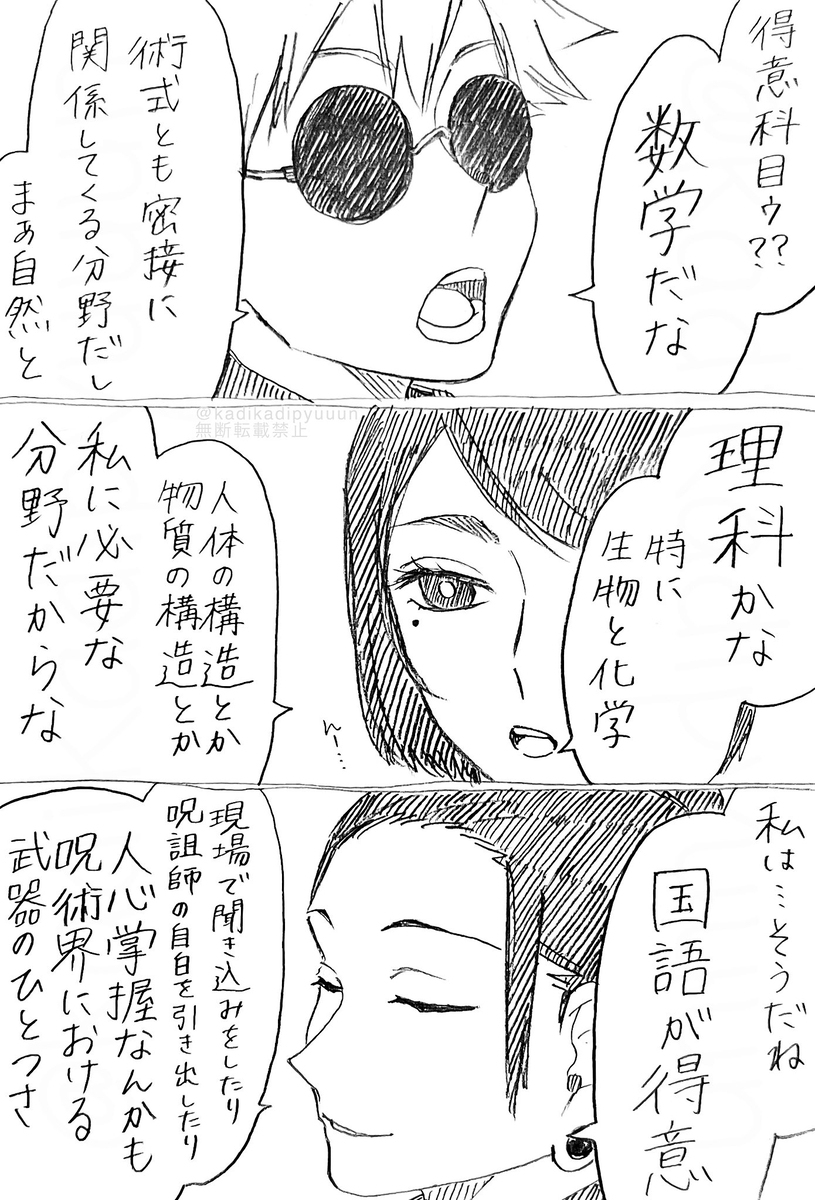 得意科目ゥ??
数学だな
術式とも密接に
関係してくる分野だし
まぁ自然と
@kadikadipyuuun
無断転載禁止
理科かな
特に
生物と化学
んー…
人体の構造とか
物質の構造とか
私に必要な
分野だからな
私は…そうだね
国語が得意
現場で聞き込みをしたり
呪詛師の自白を引き出したり
人心掌握なんかも
呪術界における
武器のひとつさ